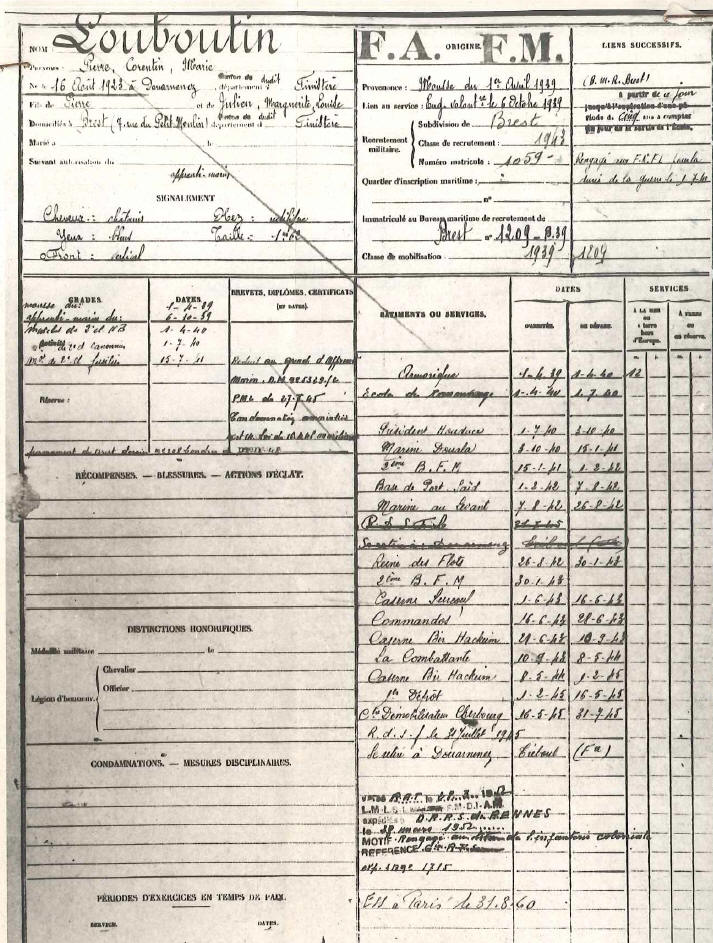 NOM : Louboutin
Prénoms : Pierre, Corentin Marie
Né le 16 Août 1923 à Douarnenez, département : Finistère
Canton du dudit
Fils de Pierre et de Julien, Marguerite, Louise
Domiciliés à Brest (7, rue du Petit Moulin) département : Finistère
Canton du dudit
Marié à le
Suivant autorisation du
apprenti-marin
SIGNALEMENT
Cheveux : châtains Nez : rectiligne
Yeux : bleus Taille : 1m62
Front : vertical
F.A. ORIGINE. F.M.
Provenance : Mousse du 1er Avril 1939
Lien au service : Eng. volontre le 6 Octobre 1939
Recrutement militaire.
Subdivision de Brest
Classe de recrutement : 1943
Numéro matricule : 1059
Quartier d'inscription maritime :
n°
Immatriculé au Bureau maritime de recrutement de
Brest n° 1209 - B.39
Classe de mobilisation 1939
LIENS SUCCESSIFS.
(B.M.R. Brest)
à partir de ce jour
jusqu'à l'expiration d'une pé-
riode de Cinq ans à compter
du jour de sa sortie de l'École.
Rengagé aux F.N.F.L.
durée de la guerre le 1.7.40
1209
GRADES. DATES
mousse du : 1-4-39
apprenti-marin du : 6-10-39
Matelot de 1-4-40
1-7-40
Mot de 2e cl fusilier 15-7-41
Réserve :
BREVETS, DIPLÔMES, CERTIFICATS
(ET DATES).
P.M.L. du 27.7.45
RÉCOMPENSES. — BLESSURES. — ACTIONS D'ÉCLAT.
DISTINCTIONS HONORIFIQUES.
Médaille militaire le
Légion d'honneur.
Chevalier
Officier
CONDAMNATIONS. — MESURES DISCIPLINAIRES.
PÉRIODES D'EXERCICES EN TEMPS DE PAIX.
SERVICE. DATES.
BÂTIMENTS OU SERVICES. DATES SERVICES
D'ARRIVÉE. DE DÉPART. À LA MER ou à terre hors d'Europe. À TERRE ou en réserve.
Armorique 1-4-39 1-4-40 12
Ecole de 1-4-40 1.7.40
Président Houduce 1-7-40 3-10-40
Marine Douala 3-10-40 15-1-41
2ème B.F.M 15-1-41 1-2-42
Base de Port Saïd 1-2-42 7-8-42
Marine au Levant 7-8-42 26-8-42
Reine des Flots 26-8-42 30-1-43
2ème B.F.M 30-1-43
Caserne Surcouf 1-6-43 16-6-43
Commandos 16-6-43 28-6-43
Caserne Bir Hackeim 29-6-43
La Combattante 8-5-44
Caserne Bir Hackeim 8-5-44 1-2-45
1er Dépôt 1-2-45 16-5-45
Cre Démobilisateur Cherbourg 16-5-45 31-7-45
R.d.s.f le 31 juillet 1945
Se retire à Douarnenez Tréboul (Fre)
D.R.R.S. de RENNES
mars 1952
MOTIF Rengagé au titre de l'infanterie coloniale
REFERENCE
1715
ESS à Paris le 31.8.60